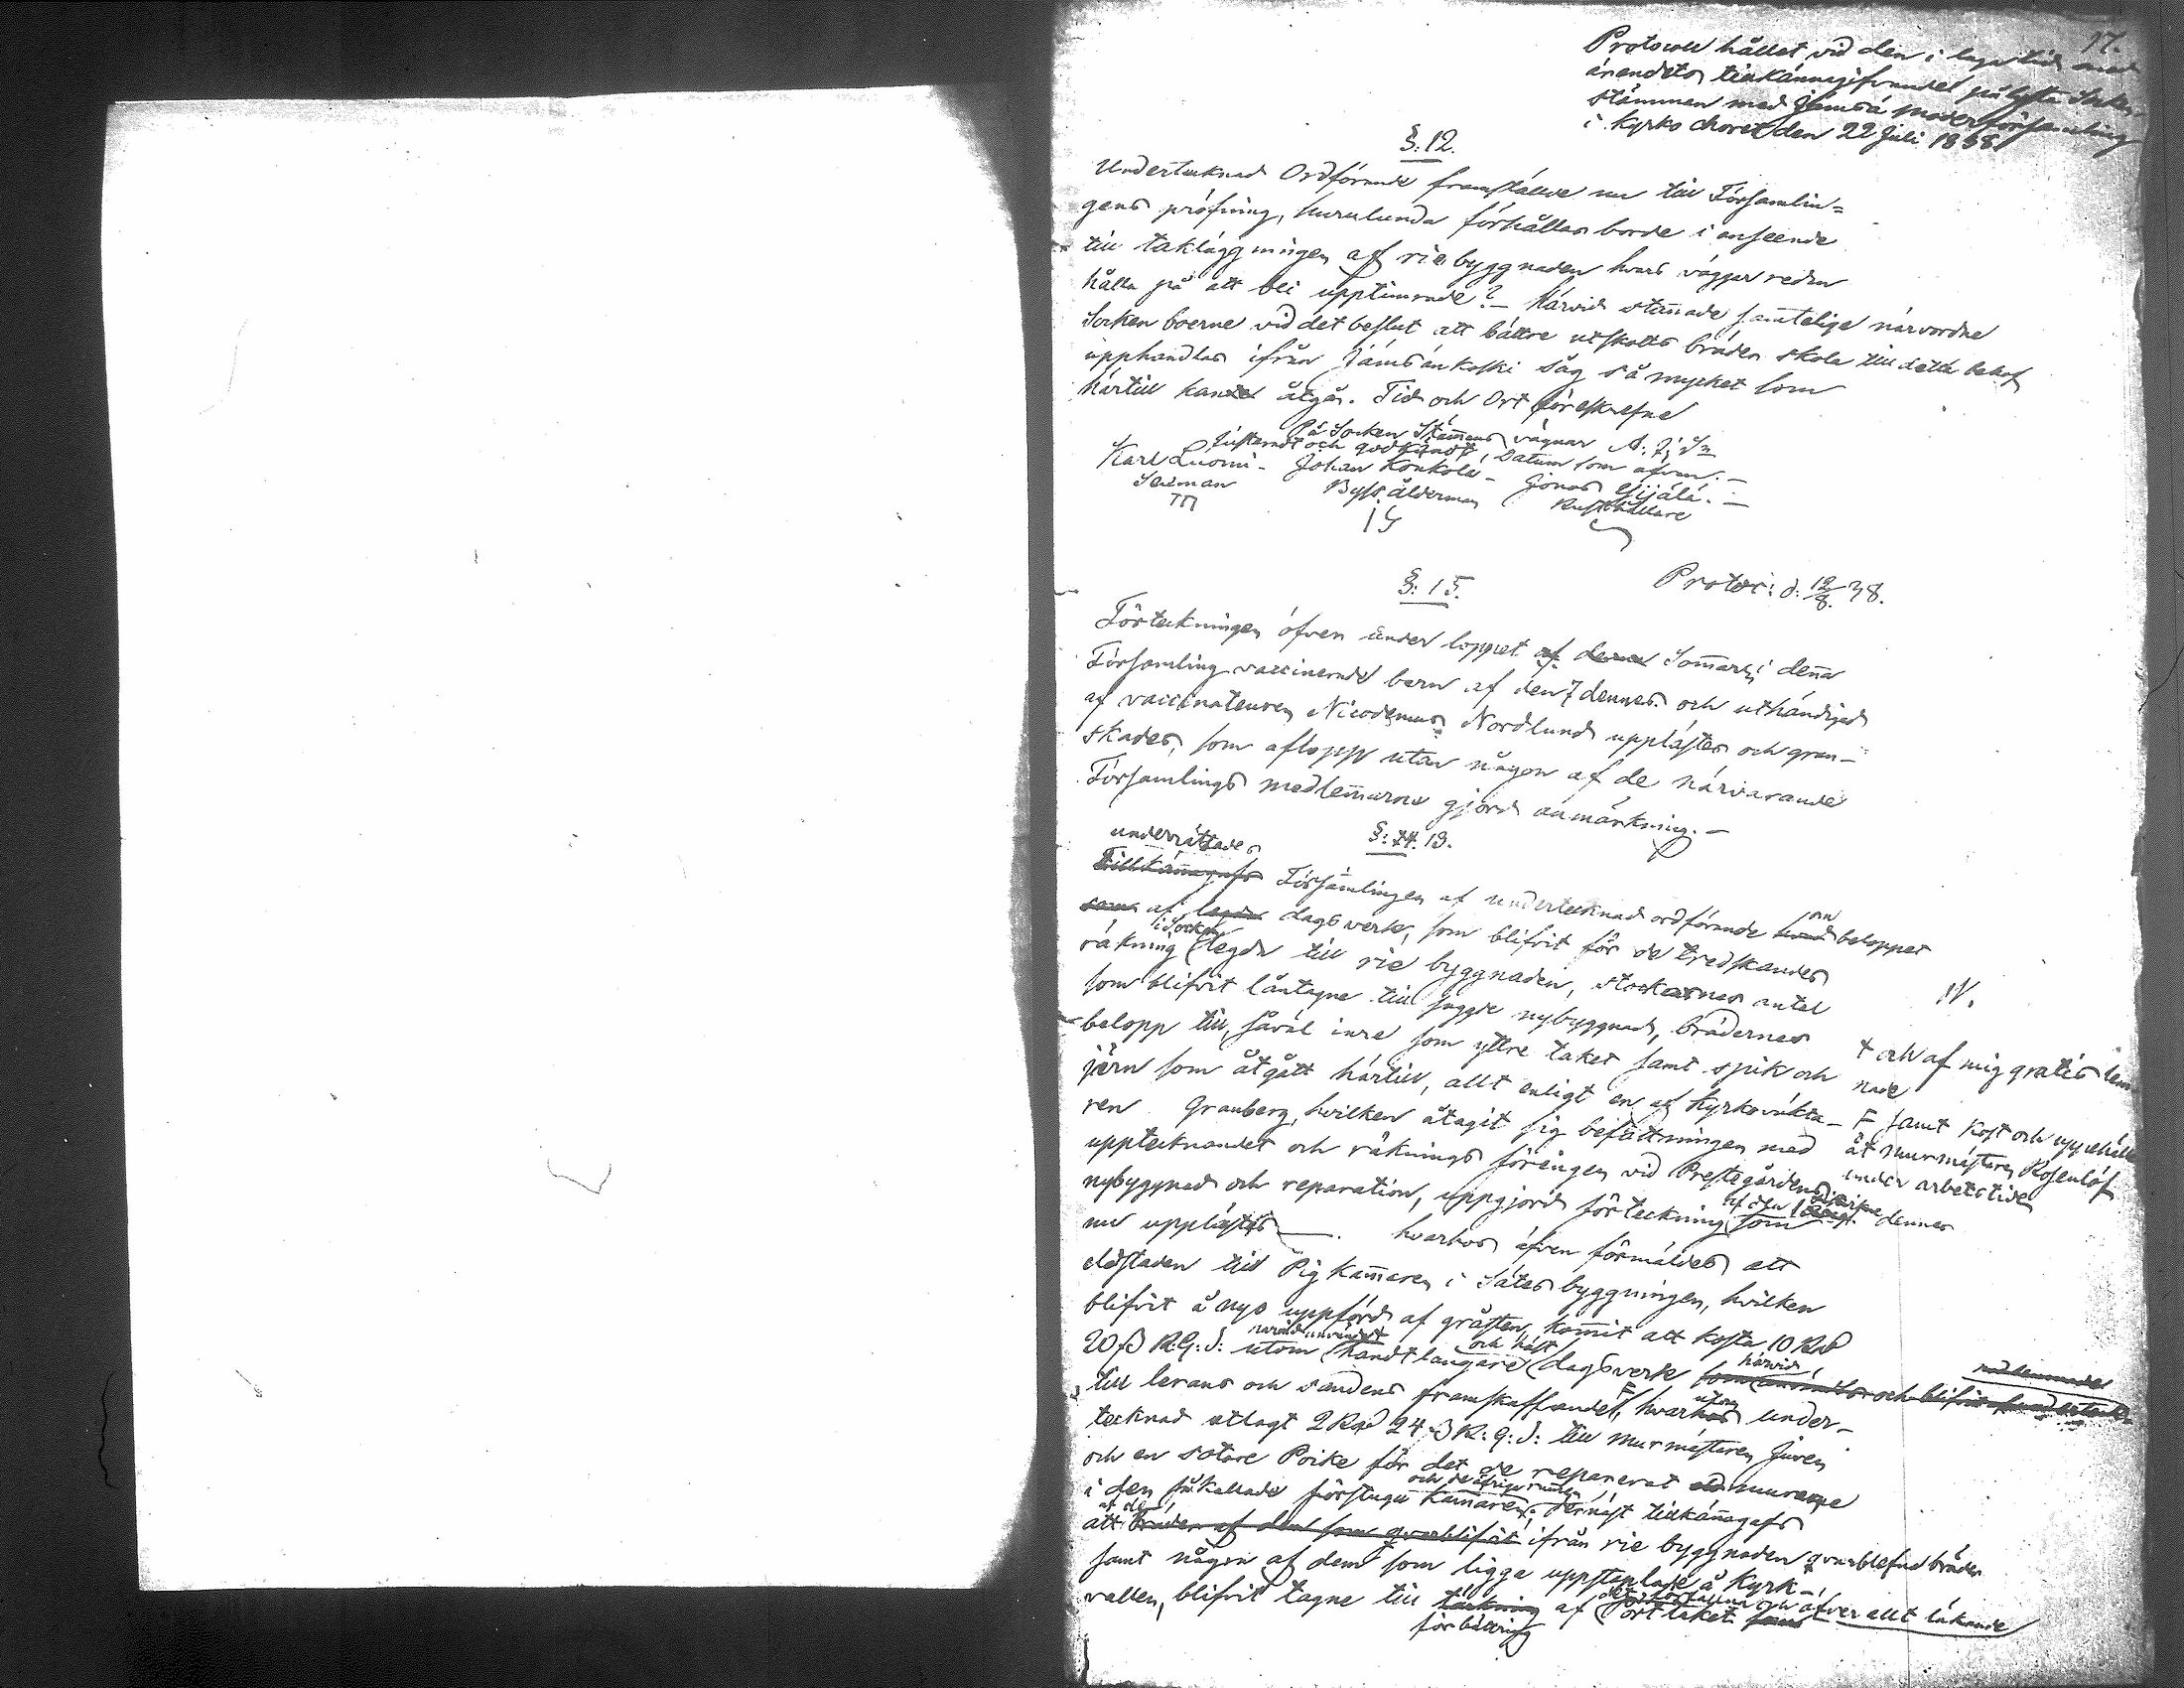 17.
Protocoll hållet vid den i laga tid med
ärendets tillkännagifvande pålysta Socken-
stämman med Jämsä moderförsamling
i Kyrko choret den 22 Juli 1838
§: 12.
Undertecknad Ordförande framställde nu till Församlin=
gens pröfning, hurulunda förhållas borde i anseende
till takläggningen af riebyggnaden hvars väggar redan
hålla på att bli upptimrade? – Härvid stannade samtelige närvordne
Sockenboerne vid det beslut att bättre utskotts bräder skola till detta behof
upphandlas ifrån Jämsänkoski såg så mycket som
härtill kan åtgå. Tid och Ort föreskrefne
På Socken Stämmans vägnar
Justeradt och godkändt, Datum som ofvan. –
Karl Luomi – Johan Konkola – Jonas
Byss. ålderman Rusthållare
§: 15. Protoc: d: 12/8. 38.
Förteckningen öfver under loppet af denna Sommar i denna
Församling vaccinerade barn af den 7 dennes och uthändigad
af vaccinateuren Nicodemus Nordlund upplästes och gran-
skades, som aflopp utan någon af de närvarande
Församlings medlemmarne gjord anmärkning. –
§: 14. 13.
underrättades
Tillkännagafs Församlingen af undertecknad ordförande om beloppet
af dagsverk, som blifvit för de tredskandes
räkning i Socken legda till rie byggnaden, stockarnes antal
som blifvit låntagne till sagde nybyggnad, brädernes
belopp till, såväl inre som yttre taket samt spik och
järn som åtgått härtill, allt enligt en af Kyrkovakta-
ren Granberg, hvilken åtagit sig befattningen med
upptecknandet och räknings föringen vid Prestegårdens
nybyggnad och reparation, uppgjord förteckning af den dennes
nu upplästes –. hvarhos äfven förmäldes att
eldstaden till Pigkammaren i Sätesbyggningen, hvilken
blifvit å nyo uppförd af gråsten, kommit att kosta 10 Rub
20 ß R.G.S: utom handtlangare och häst dagsverk härvid
till lerans och sandens framskaffandet, hvar utom under-
tecknad utlagt 2 Rub 24 ß R: G: S: till murmästaren Juven
och en sotare Poike för det de reparerat murarne
i den så kallade förstugu kammaren; dernäst tillkännagafs
att af de ifrån rie byggnaden qvarblefne bräder
samt någon af dem som ligga uppstaplade å Kyrk-
vallen, blifvit tagne till täckning af taket öfver allt läkande
förbättring
N.
+ och af mig gratis lem-
nade
F samt kost och uppehälle
åt murmästaren Rosenlöf
under arbetstiden